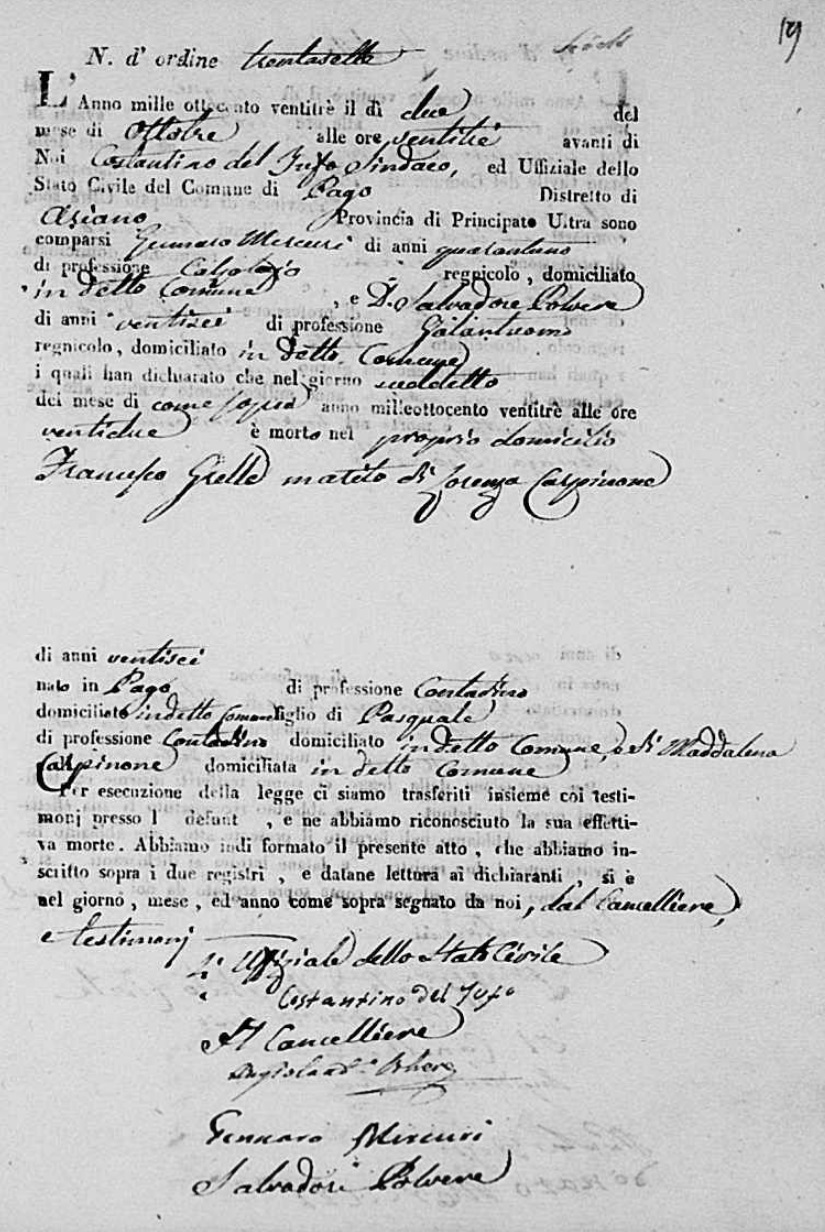 19
N. d' ordine trentasette
L' Anno mille ottocento ventitrè il dì due del
mese di Ottobre alle ore ventitrè avanti di
Noi Costantino del Tufo Sindaco, ed Uffiziale dello
Stato Civile del Comune di Pago Distretto di
Ariano Provincia di Principato Ultra sono
comparsi Gennaro Mercuri di anni quarantuno
di professione Calzolajo regnicolo, domiciliato
in detto Comune, e D. Salvadore Polvere
di anni ventisei di professione Galantuomo
regnicolo, domiciliato in detto Comune
i quali han dichiarato che nel giorno suddetto
del mese di come sopra anno milleottocento ventitrè alle ore
ventidue è morto nel proprio domicilio
Francesco Grelle marito di Lorenza Carpinone
di anni ventisei
nato in Pago di professione Contadino
domiciliato in detto Comune figlio di Pasquale
di professione Contadino domiciliato in detto Comune, e di Maddalena
Carpinone domiciliata in detto Comune
Per esecuzione della legge ci siamo trasferiti insieme coi testi-
monj presso l defunt , e ne abbiamo riconosciuto la sua effetti-
va morte. Abbiamo indi formato il presente atto, che abbiamo in-
scritto sopra i due registri, e datane lettura ai dichiaranti, si è
nel giorno, mese, ed anno come sopra segnato da noi, dal Cancelliere,
e testimonj
L' Uffiziale dello Stato Civile
Costantino del Tufo
Il Cancelliere
Polvere
Gennaro Mercuri
Salvadori Polvere